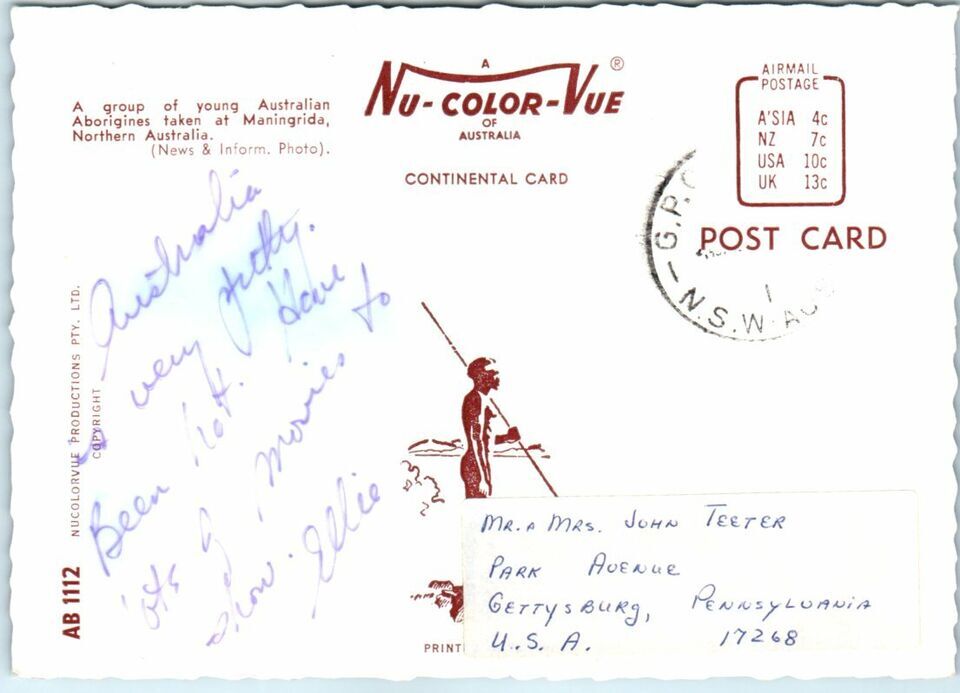 A group of young Australian
Aborigines taken at Maningrida,
Northern Australia.
(News & Inform. Photo).
A
NU-COLOR-VUE ®
OF
AUSTRALIA
CONTINENTAL CARD
AIRMAIL
POSTAGE
A'SIA 4c
NZ 7c
USA 10c
UK 13c
POST CARD
G.P.O
N.S.W-AUS
1
Australia
is very
pretty.
Been hot. Have
lots of movies to
show. Ellie
NUCOLORVUE PRODUCTIONS PTY. LTD.
COPYRIGHT
AB 1112
MR. & MRS. JOHN TEETER
PARK AVENUE
GETTYSBURG, PENNSYLVANIA
U.S.A. 17268
PRINT